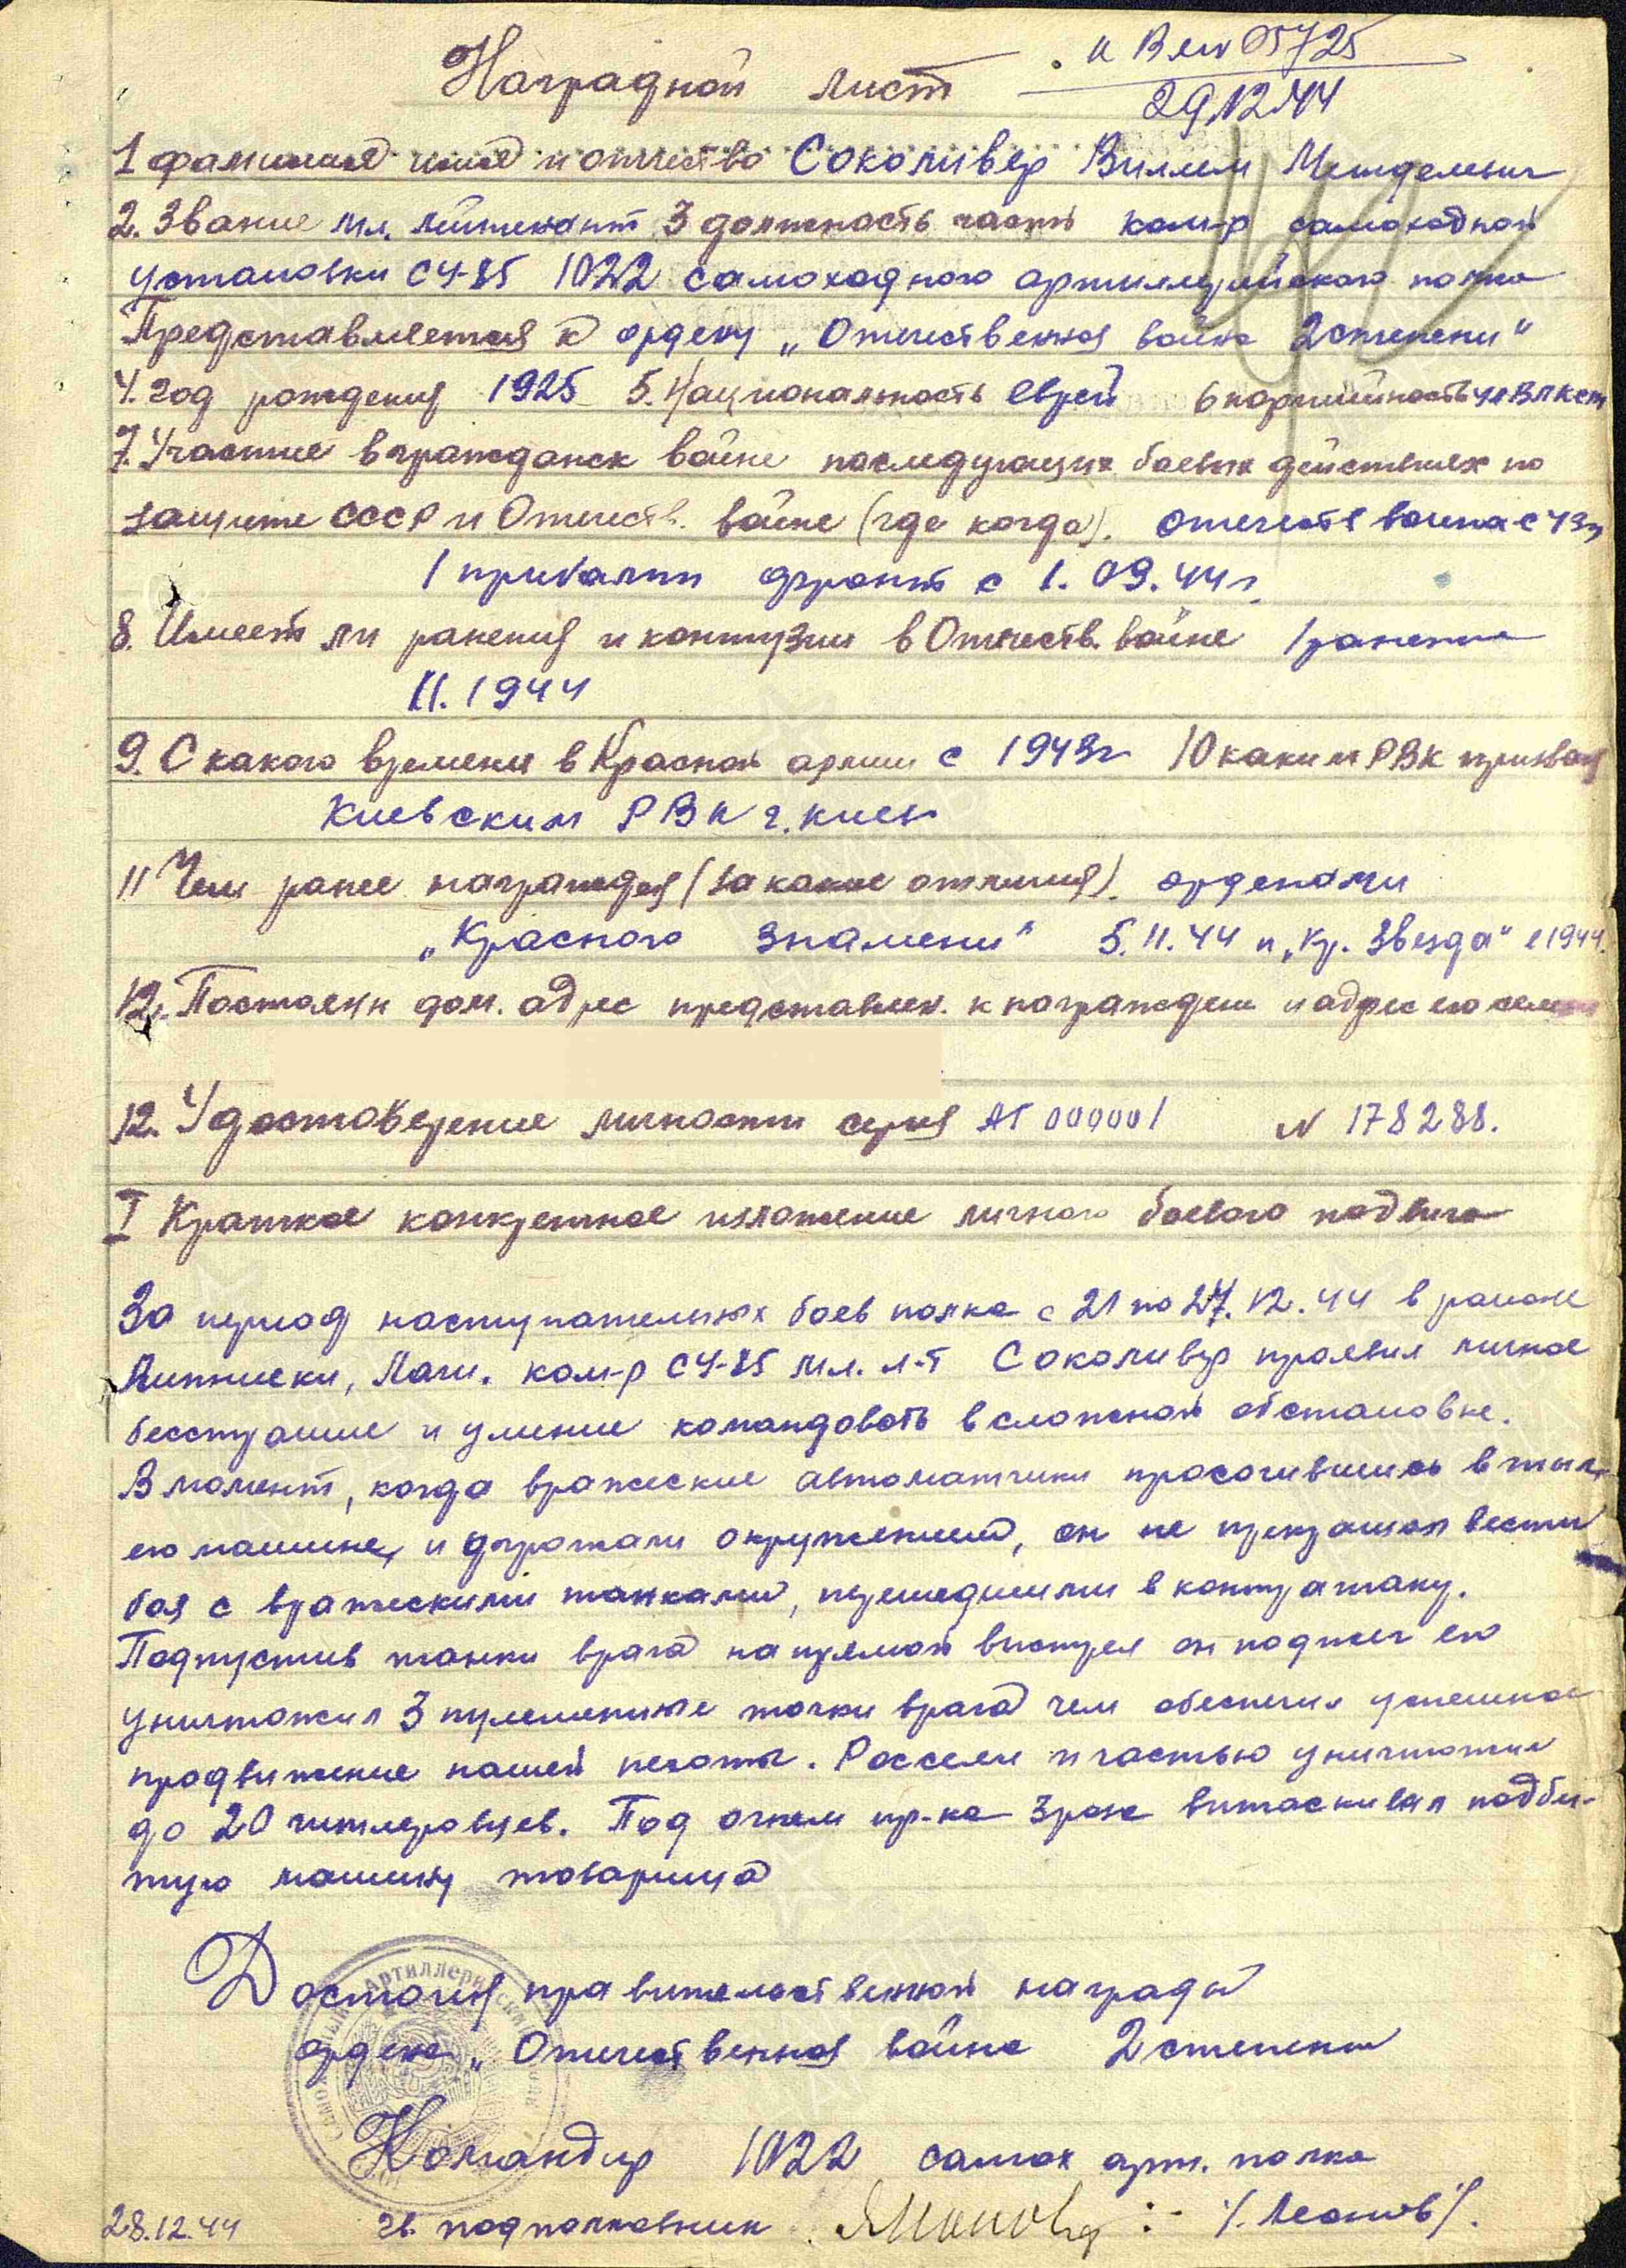 Наградной лист
05725
29.12.44
1 фамилия имя и отчество Соколивер Виллем Менделевич
2. Звание мл. лейтенант 3 должность часть ком-р самоходной
установки СУ-85 1022 самоходного артиллерийского полка
Представляется к ордену „Отечественная война 2 степени"
4. год рождения 1925 5. Национальность еврей 6 партийность чл ВЛКСМ
7. Участие в гражданск войне последующих боевых действиях по
защите СССР и Отечеств. войне (где когда). отечеств война с 43г
1 прибалт фронт с 1.09.44г.
8. Имеет ли ранения и контузии в Отечеств. войне 1 ранение
II.1944
9. С какого времени в Красной армии с 1943г 10 каким РВК призван
Киевским РВК г. Киев
11 Чем ранее награжден (за какие отличия). орденами
„Красного Знамени" 5.11.44 и „Кр. Звезда" 1944.
12. Постоянн дом. адрес представлен. к награжден и адрес его семьи
12. Удостоверение личности серия АТ 000001 N 178288.
I Краткое конкретное изложение личного боевого подвига
За период наступательных боев полка с 21 по 27.12.44 в районе
Лачи. ком-р СУ-85 мл. л-т Соколивер проявил личное
бесстрашие и умение командовать в сложной обстановке.
В момент, когда вражеские автоматчики просочившись в тыл
его машине, и угрожали окружением, он не прекращал вести
боя с вражескими танками, перешедшими в контратаку.
Подпустив танки врага на прямой выстрел он поджег его
уничтожил 3 пулеметные точки врага чем обеспечил успешное
продвижение нашей пехоты. Рассеял и частью уничтожил
до 20 гитлеровцев. Под огнем пр-ка 3 раза вытаскивал подби-
тую машину товарища
Достоин правительственной награды
ордена „Отечественная война 2 степени
Командир 1022 самох арт. полка
28.12.44 гв. подполковник /Леонов/.